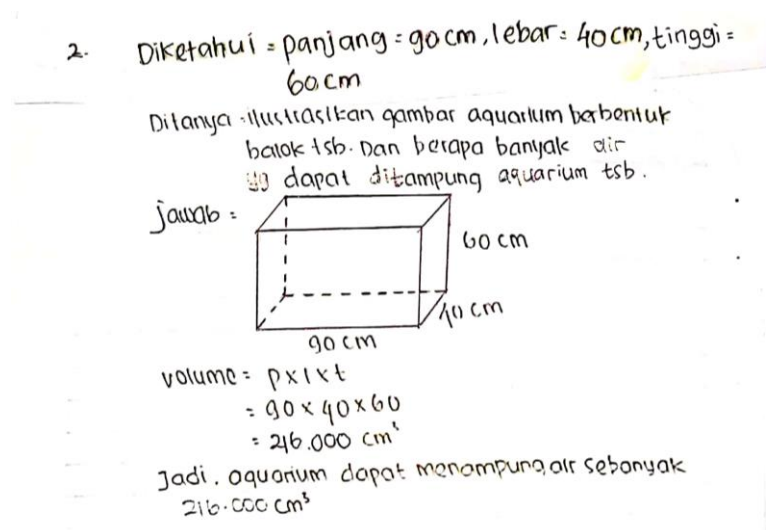 2. Diketahui = panjang = 90 cm, lebar = 40 cm, tinggi =
60 cm
Ditanya = ilustrasikan gambar aquarium berbentuk
balok tsb. Dan berapa banyak air
yg dapat ditampung aquarium tsb.
jawab =
60 cm
40 cm
90 cm
volume = p x l x t
= 90 x 40 x 60
= 216.000 cm³
Jadi. aquarium dapat menampung air sebanyak
216.000 cm³